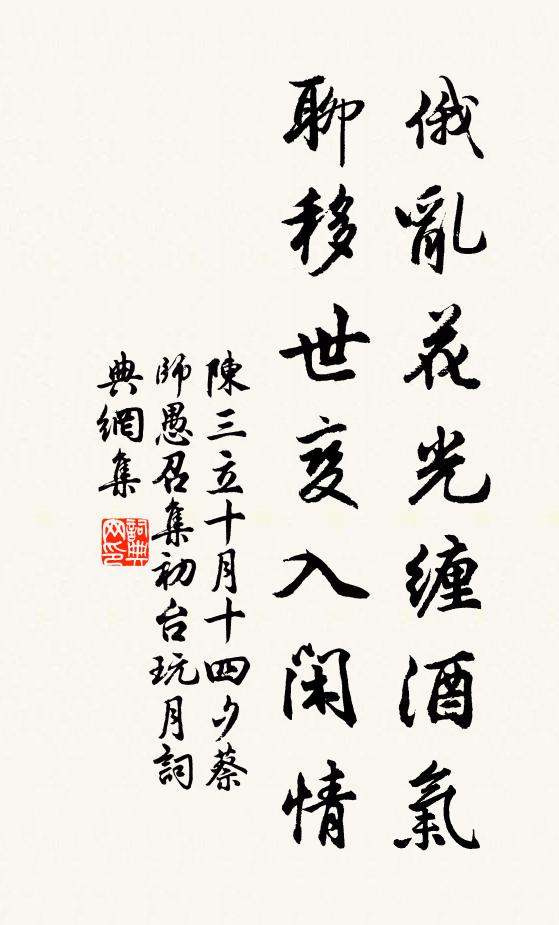 俄亂花光纏酒氣
聊移世变入閑情
陳三立十月十四夕蔡
師愚召集初台玩月詞
典網集
詞典网印